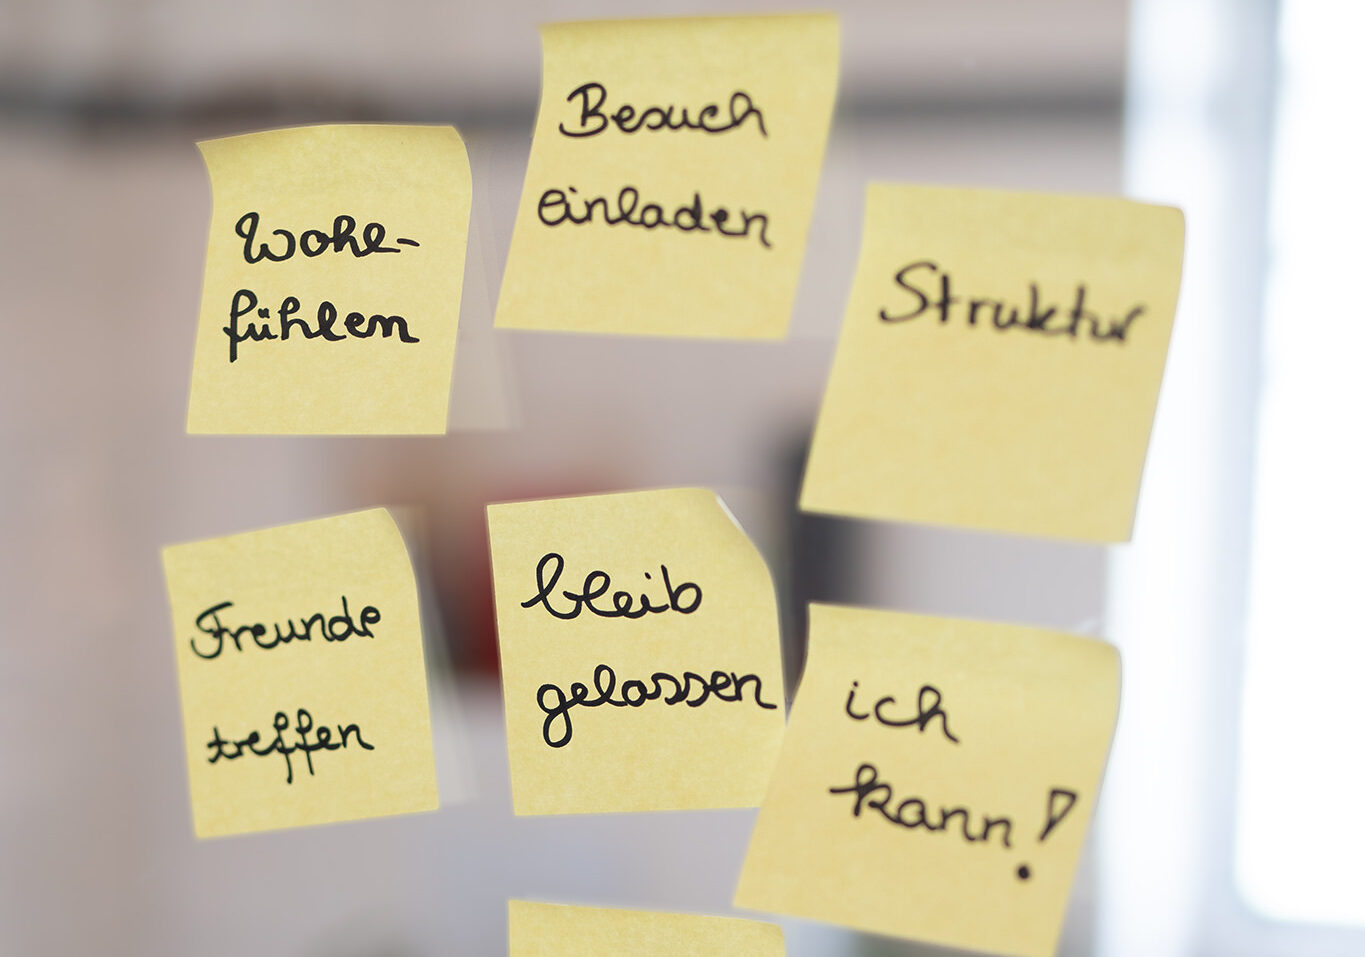 Besuch
einladen
Wohl-
fühlen
Struktur
Freunde
treffen
bleib
gelassen
ich
kann!